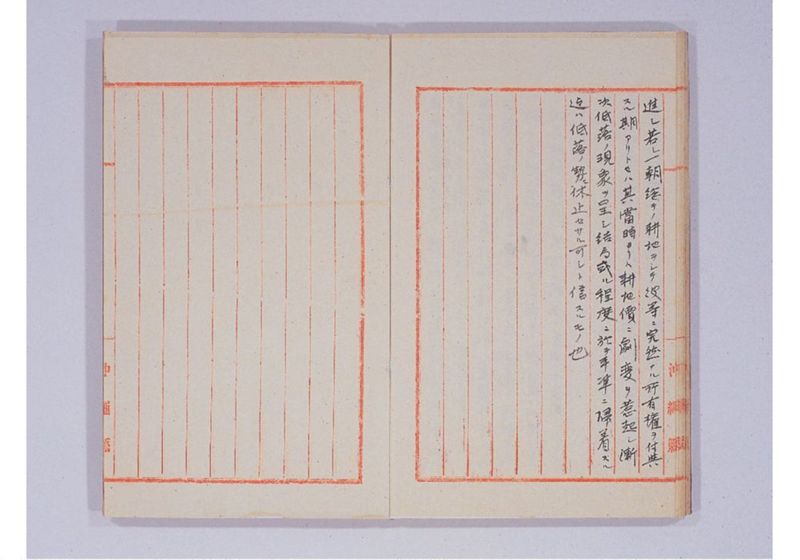 進シ若シ一朝総テノ耕地ヲシテ彼等ニ完然ナル所有権ヲ付与
スル期アリトセハ其當時ヨリ耕地價ニ劇変ヲ惹起シ漸
次低落ノ現象ヲ呈シ結局或ル程度ニ於テ平準ニ帰着スル
迄ハ低落ノ勢ヒ休止セサル可シト信スルモノ也
沖繩縣
沖繩縣